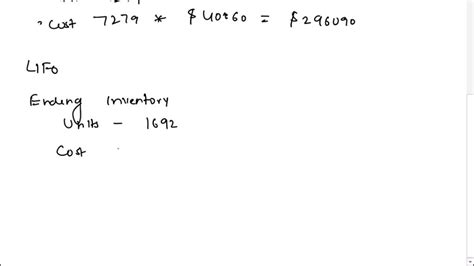 Cost 7279 * $40.60 = $296090
LIFO
Ending Inventory
Units - 1692
Cost